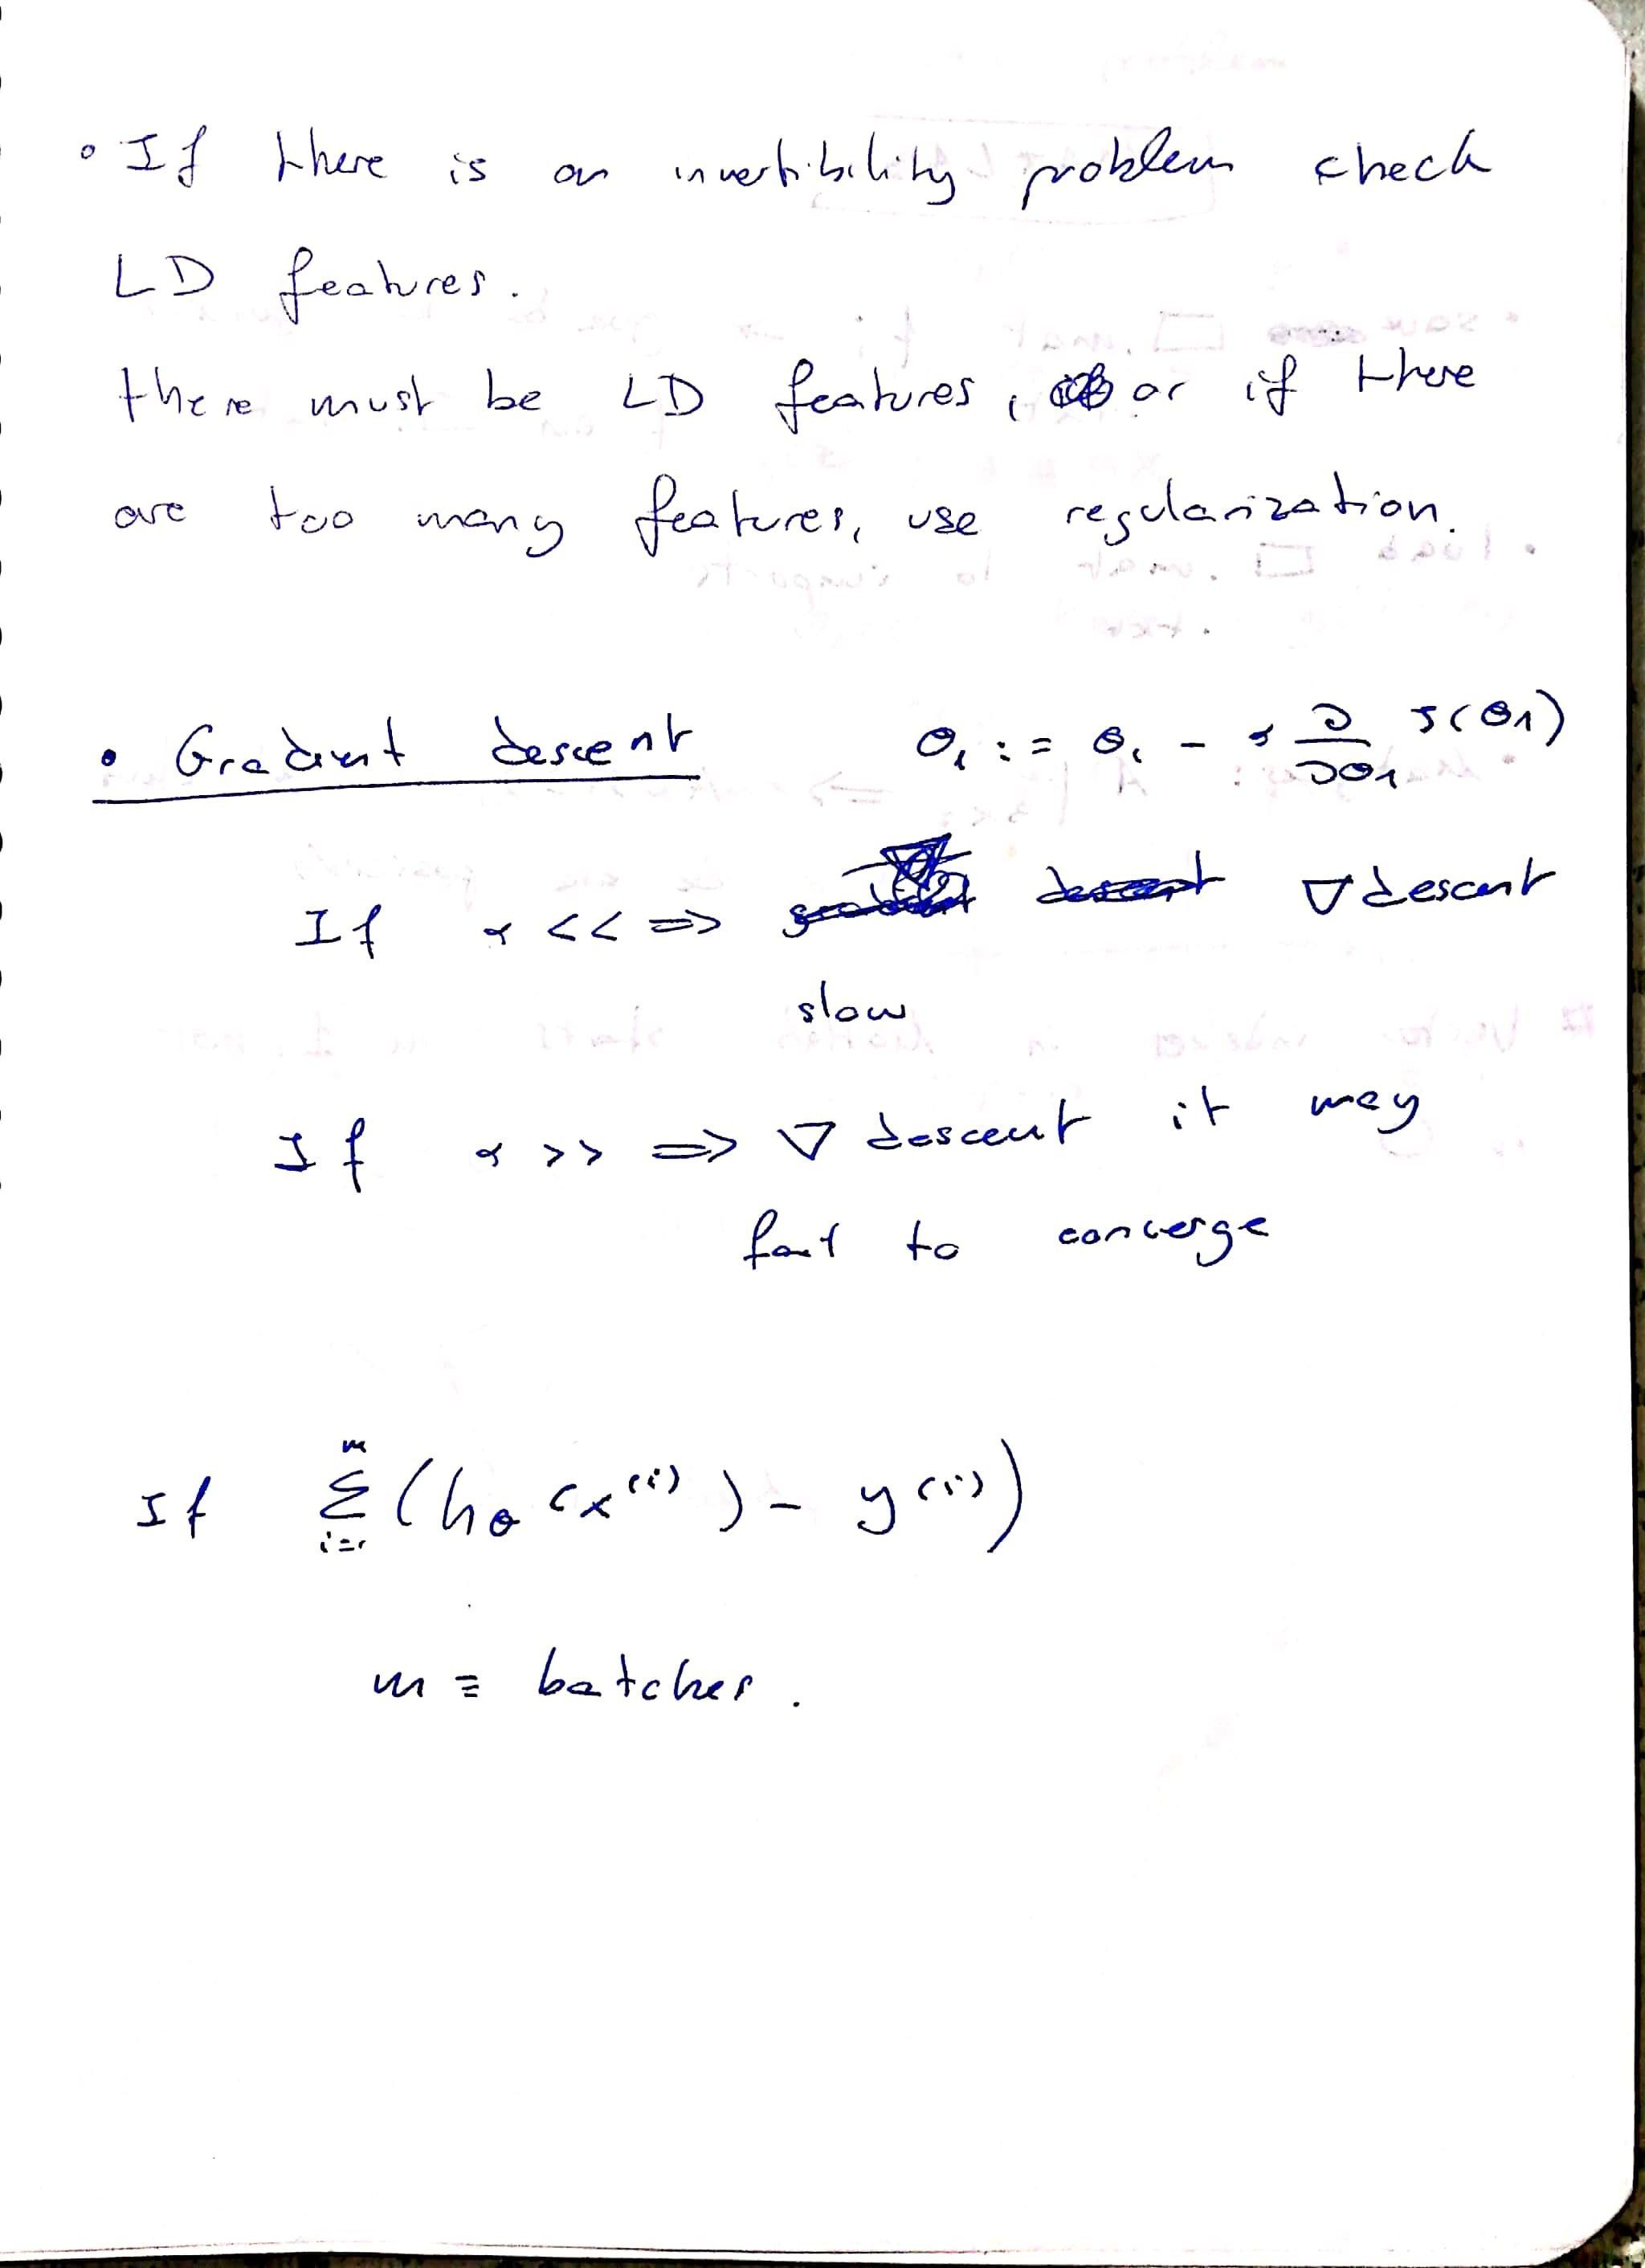 • If there is an invertibility problem check
LD features.
there must be LD features, or if there
are too many features, use regularization.
• Gradient descent θ₁ := θ₁ - α ∂/∂θ₁ J(θ₁)
If α << => ∇ descent
slow
If α >> => ∇ descent it may
fail to converge
If Σ_{i=1}^{m} (h_θ(x^(i)) - y^(i))
m = batches.